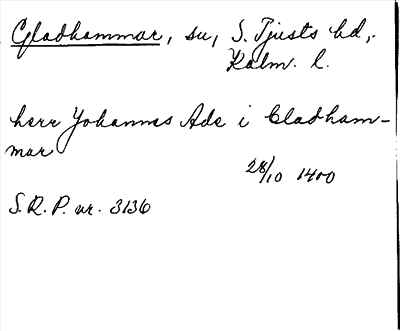 Gladhammar, su, S. Tjusts hd,
Kalm. l.
herr Johannes Ade i Gladham-
mar
28/10 1400
S.R.P. nr. 3136